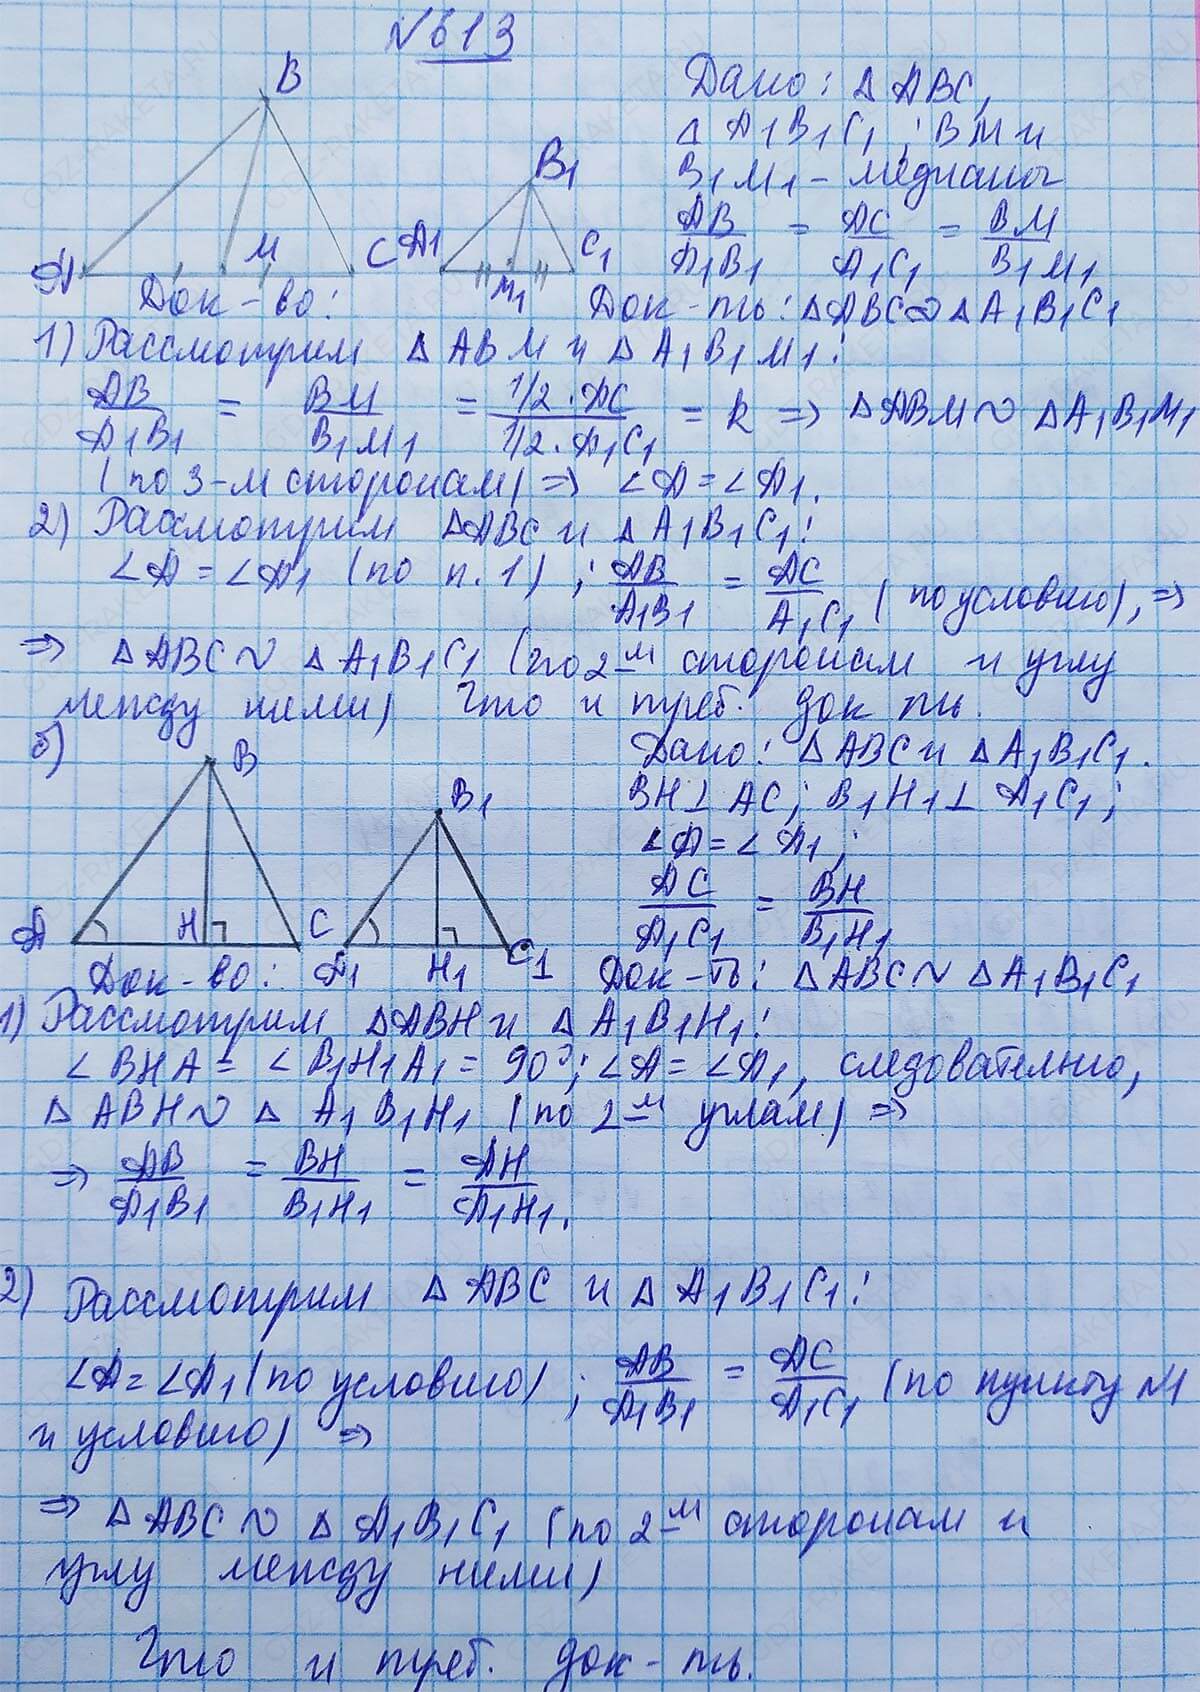 №613
B
Дано: Δ ABC,
Δ A1B1C1; BM и
B1
B1M1 - медианы
AB/A1B1 = AC/A1C1 = BM/B1M1
A M C A1 M1 C1
Док-во:
Док-ть: ΔABC ~ Δ A1B1C1
1) Рассмотрим Δ ABM и Δ A1B1M1:
AB/A1B1 = BM/B1M1 = 1/2·AC/1/2·A1C1 = k => ΔABM ~ ΔA1B1M1
(по 3-м сторонам) => ∠A = ∠A1.
2) Рассмотрим ΔABC и Δ A1B1C1:
∠A = ∠A1 (по п. 1); AB/A1B1 = AC/A1C1 (по условию), =>
=> ΔABC ~ Δ A1B1C1 (по 2-м сторонам и углу
между ними) Что и треб. док ть.
б)
B
Дано: ΔABC и ΔA1B1C1.
B1
BH⊥AC; B1H1⊥ A1C1;
∠A = ∠A1;
AC/A1C1 = BH/B1H1
A H C A1 H1 C1
Док-во:
Док-ть: ΔABC ~ ΔA1B1C1
1) Рассмотрим ΔABH и Δ A1B1H1:
∠BHA = ∠B1H1A1 = 90°; ∠A = ∠A1, следовательно,
Δ ABH ~ Δ A1B1H1 (по 2-м углам) =>
=> AB/A1B1 = BH/B1H1 = AH/A1H1.
2) Рассмотрим Δ ABC и Δ A1B1C1:
∠A = ∠A1 (по условию); AB/A1B1 = AC/A1C1 (по пункту №1
и условию) =>
=> Δ ABC ~ Δ A1B1C1 (по 2-м сторонам и
углу между ними)
Что и треб. док-ть.